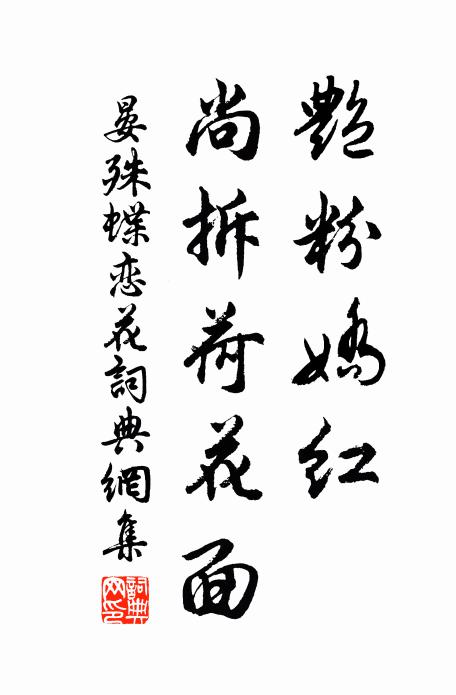 艷粉嬌紅
尚拆荷花面
晏殊蝶恋花詞典網集
詞典网印